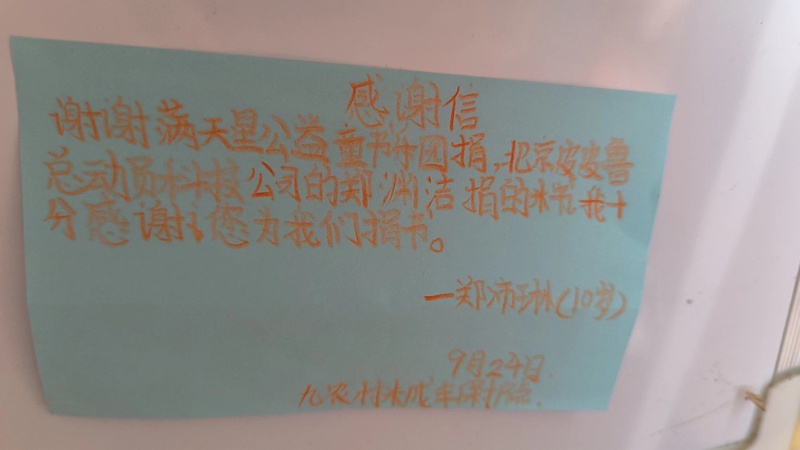 感谢信
谢谢满天星公益童书乐园捐,北京皮皮鲁
总动员科技公司的郑渊洁捐的书,我十
分感谢,您为我们捐书。
一郑沛琳(10岁)
9月24日
九农村未成年